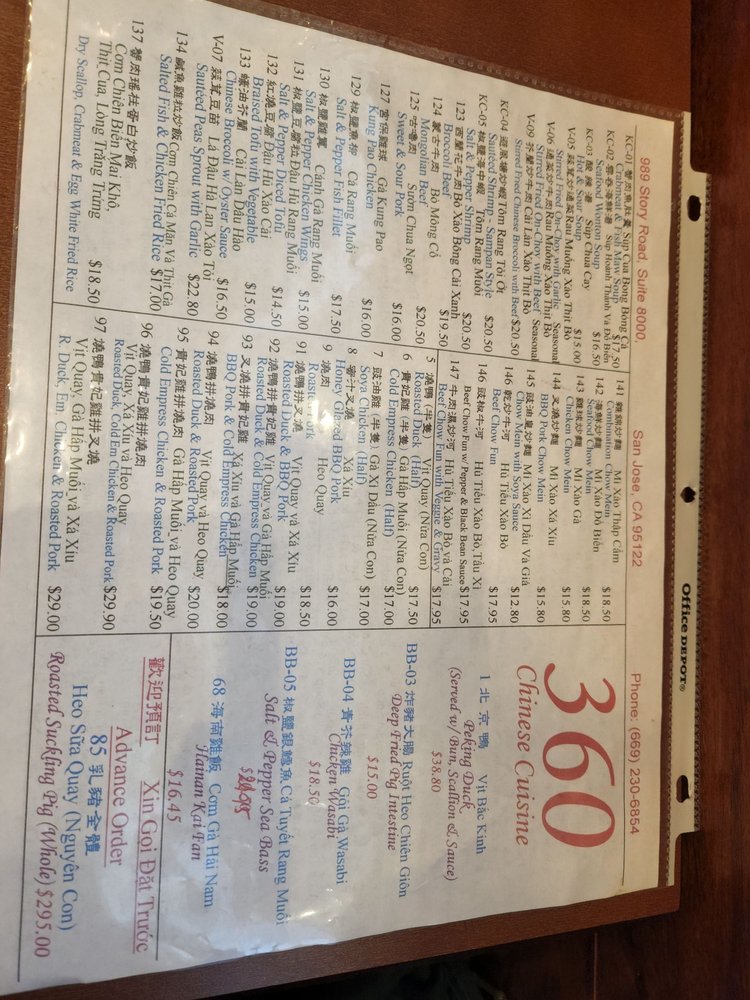 Office DEPOT®
989 Story Road, Suite 8000,
San Jose, CA 95122
Phone: (669) 230-6854
KC-01 蟹肉魚肚羹 Súp Cua Bong Bóng Cá
Crabmeat & Fish Maw Soup $17.50
KC-02 Súp Hoành Thánh Và Đồ Biển
Seafood Wonton Soup $16.50
KC-03 酸辣湯 Súp Chua Cay
Hot & Sour Soup $15.00
V-05 Rau Muống Xào Thịt Bò
Stirred Fried On-Choy with Garlic Seasonal
V-06 Rau Muống Xào Thịt Bò
Stirred Fried On-Choy with Beef Seasonal
V-09 芥蘭炒牛肉 Cải Làn Xào Thịt Bò
Stirred Fried Chinese Broccoli with Beef $20.50
KC-04 避風塘炒蝦 Tôm Rang Tỏi Ớt
Sautéed Shrimp Sampan Style $20.50
KC-05 椒鹽海中蝦 Tôm Rang Muối
Salt & Pepper Shrimp $20.50
123 西蘭花牛肉 Bò Xào Bông Cải Xanh
Broccoli Beef $19.50
124 蒙古牛肉 Bò Mông Cổ
Mongolian Beef $20.50
125 咕嚕肉 Sườn Chua Ngọt
Sweet & Sour Pork $16.00
127 宮保雞球 Gà Kung Pao
Kung Pao Chicken $16.00
129 椒鹽魚柳 Cá Rang Muối
Salt & Pepper Fish Fillet $17.50
130 椒鹽雞翼 Cánh Gà Rang Muối
Salt & Pepper Chicken Wings $15.00
131 椒鹽豆腐粒 Đậu Hủ Rang Muối
Salt & Pepper Diced Tofu $14.50
132 紅燒豆腐 Đậu Hủ Xào Cải
Braised Tofu with Vegetable $15.00
133 蠔油芥蘭 Cải Làn Dầu Hào
Chinese Broccoli w/ Oyster Sauce $16.50
V-07 蒜茸豆苗 Lá Đậu Hà Lan Xào Tỏi
Sautéed Peas Sprout with Garlic $22.80
134 鹹魚雞粒炒飯 Cơm Chiên Cá Mặn Và Thịt Gà
Salted Fish & Chicken Fried Rice $17.00
137 蟹肉瑤柱蛋白炒飯
Cơm Chiên Biên Mai Khô,
Thịt Cua, Lòng Trắng Trứng $18.50
Dry Scallop, Crabmeat & Egg White Fried Rice
141 雜錦炒麵 Mì Xào Thập Cẩm
Combination Chow Mein $18.50
142 海鮮炒麵 Mì Xào Đồ Biển
Seafood Chow Mein $18.50
143 雞球炒麵 Mì Xào Gà
Chicken Chow Mein $15.80
144 叉燒炒麵 Mì Xào Xá Xíu
BBQ Pork Chow Mein $15.80
145 豉油皇炒麵 Mì Xào Xì Dầu Và Giá
Chow Mein with Soya Sauce $12.80
146 乾炒牛河 Hủ Tiếu Xào Bò
Beef Chow Fun $17.95
146 豉椒牛河 Hủ Tiếu Xào Bò,Tàu Xì
Beef Chow Fun w/ Pepper & Black Bean Sauce $17.95
147 牛肉濕炒河 Hủ Tiếu Xào Bò,và Cải
Beef Chow Fun with Veggie & Gravy $17.95
5 燒鴨 (半隻) Vịt Quay (Nửa Con)
Roasted Duck (Half) $17.50
6 貴妃雞 (半隻) Gà Hấp Muối (Nửa Con)
Cold Empress Chicken (Half) $17.00
7 豉油雞 (半隻) Gà Xì Dầu (Nửa Con)
Soya Chicken (Half) $17.00
8 蜜汁叉燒 Xá Xíu
Honey Glazed BBQ Pork $16.00
9 燒肉 Heo Quay
Roasted Pork $18.50
91 燒鴨拼叉燒 Vịt Quay và Xá Xíu
Roasted Duck & BBQ Pork $19.00
92 燒鴨拼貴妃雞 Vịt Quay và Gà Hấp Muối
Roasted Duck & Cold Empress Chicken $19.00
93 叉燒拼貴妃雞 Xá Xíu và Gà Hấp Muối
BBQ Pork & Cold Empress Chicken $18.00
94 燒鴨拼燒肉 Vịt Quay và Heo Quay
Roasted Duck & Roasted Pork $20.00
95 貴妃雞拼燒肉 Gà Hấp Muối và Heo Quay
Cold Empress Chicken & Roasted Pork $19.50
96 燒鴨貴妃雞拼燒肉
Vịt Quay, Xá Xíu và Heo Quay
Roasted Duck, Cold Em Chicken & Roasted Pork $29.90
97 燒鴨貴妃雞拼叉燒
Vịt Quay, Gà Hấp Muối và Xá Xíu
R. Duck, Em. Chicken & Roasted Pork $29.00
360
Chinese Cuisine
1 北京鴨 Vịt Bắc Kinh
Peking Duck
(Served w/ Bun, Scallion & Sauce)
$38.80
BB-03 炸豬大腸 Ruột Heo Chiên Giòn
Deep Fried Pig Intestine
$15.00
BB-04 青芥辣雞 Gỏi Gà Wasabi
Chicken Wasabi
$18.50
BB-05 椒鹽銀鱈魚 Cá Tuyết Rang Muối
Salt & Pepper Sea Bass
68 海南雞飯 Cơm Gà Hải Nam
Hainan Kai Fan
$16.45
歡迎預訂 Xin Gọi Đặt Trước
Advance Order
85 乳豬全體
Heo Sữa Quay (Nguyên Con)
Roasted Suckling Pig (Whole) $295.00